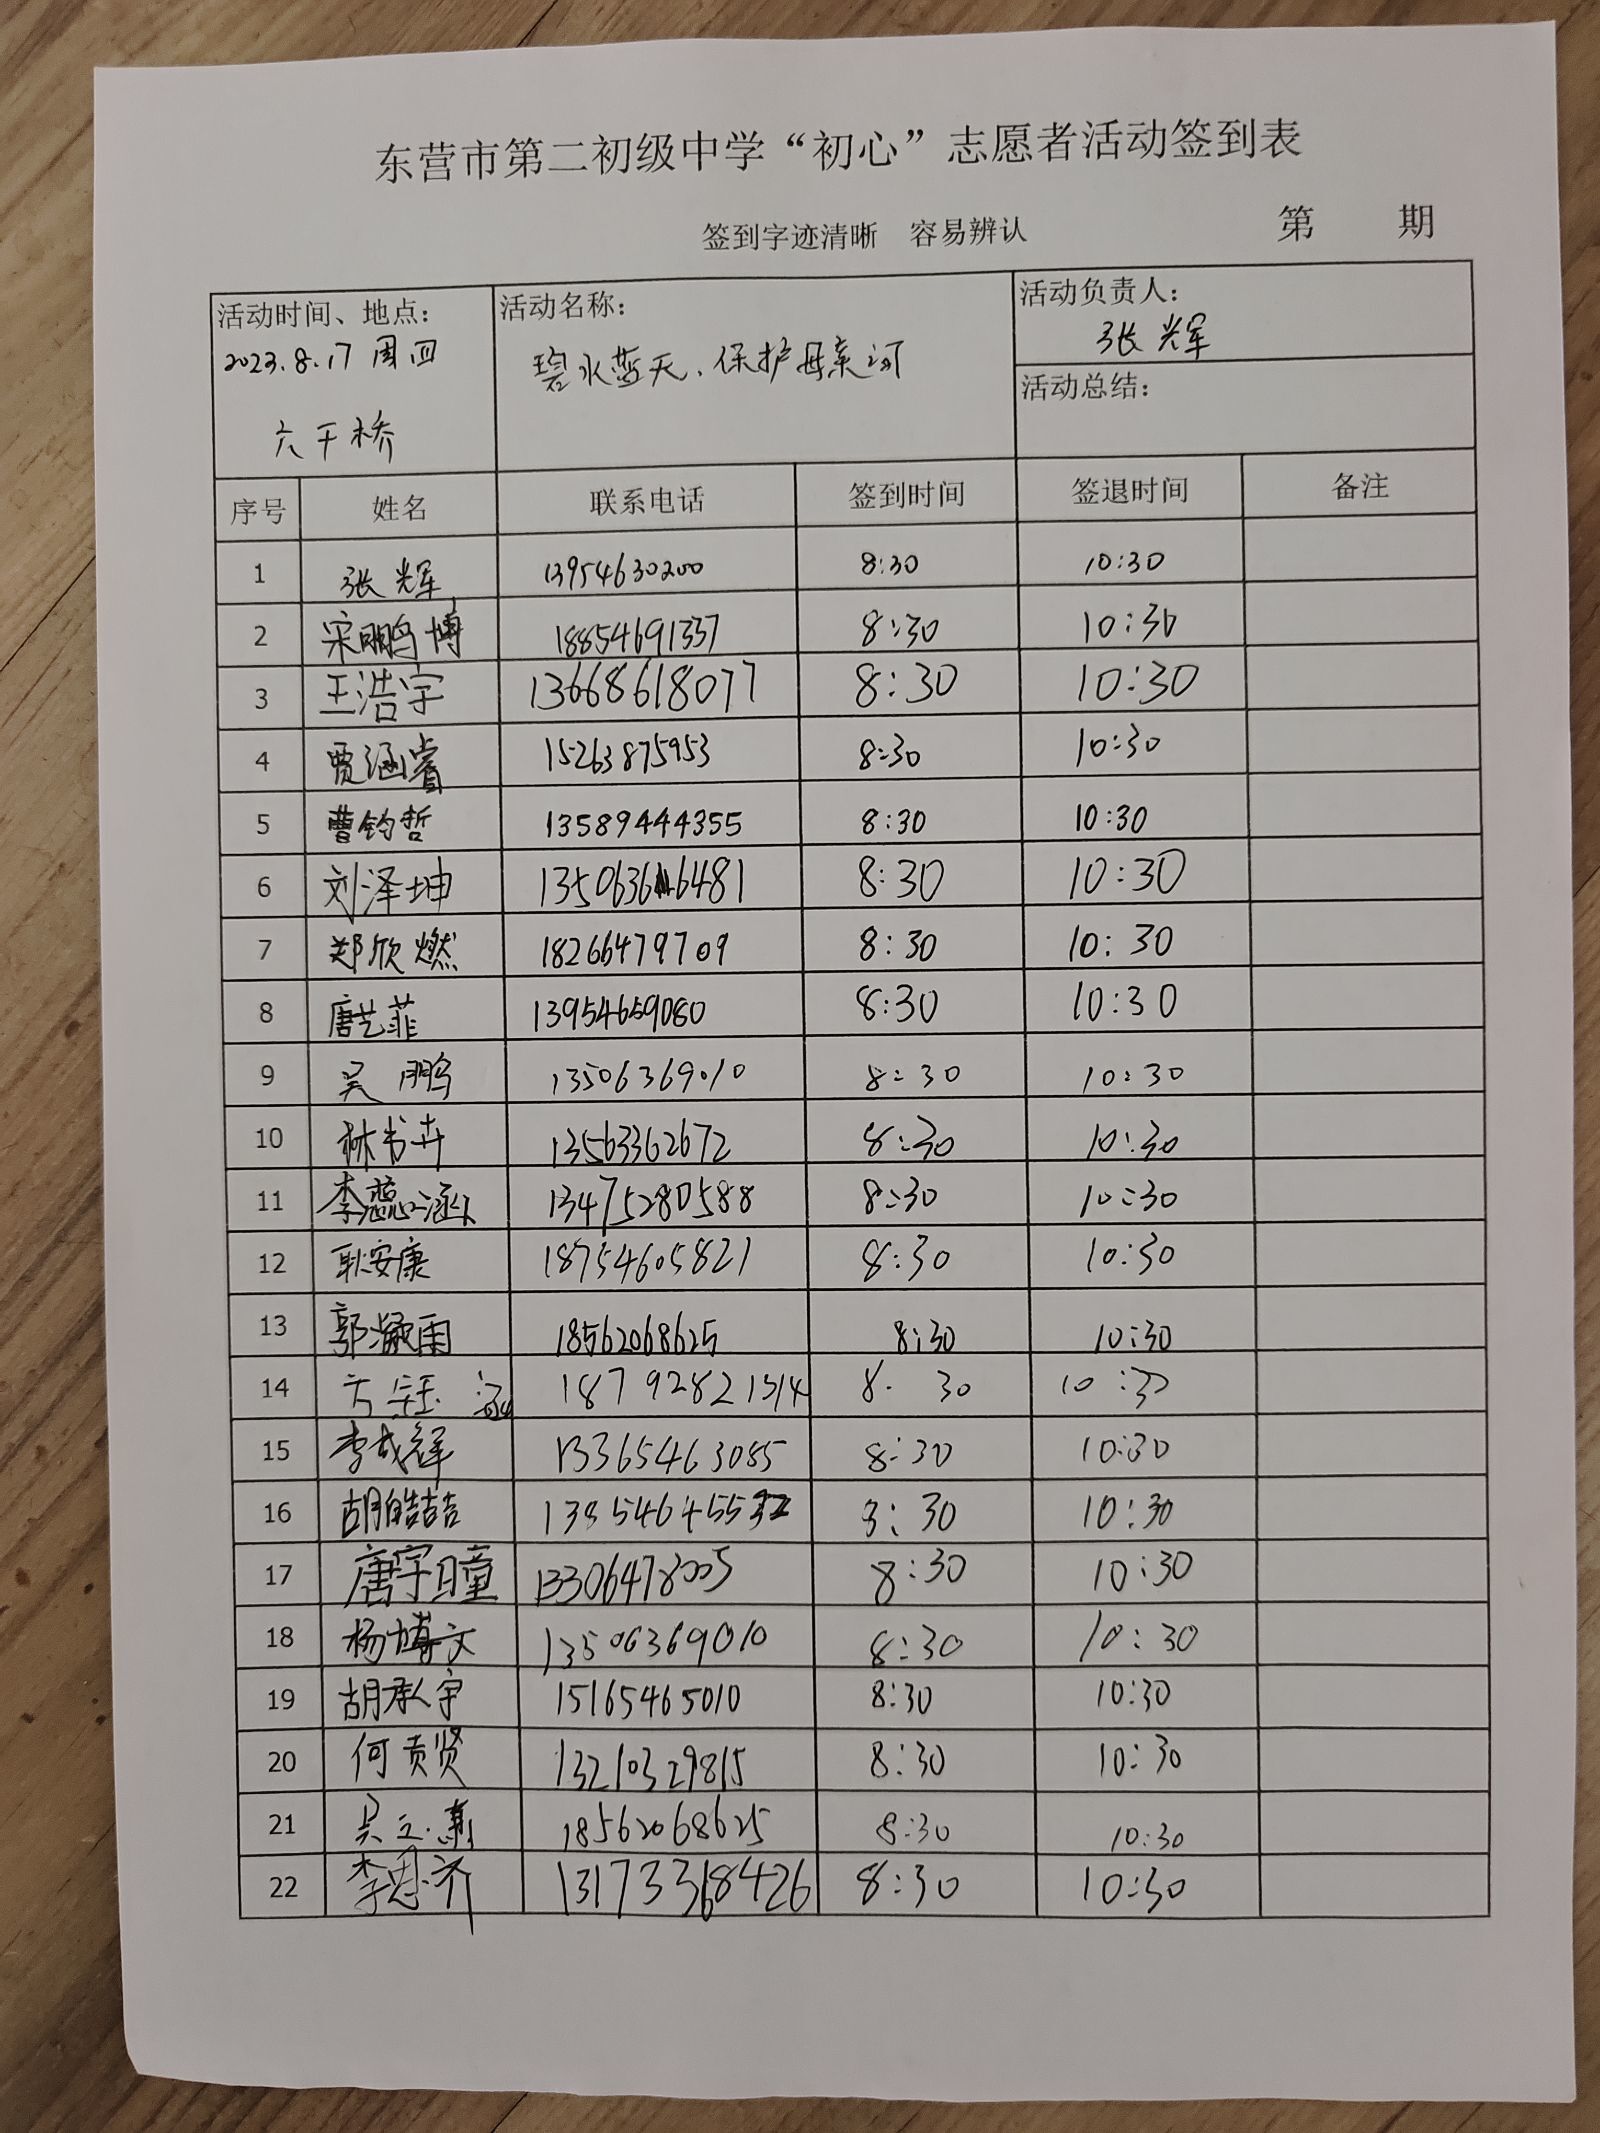 东营市第二初级中学“初心”志愿者活动签到表
签到字迹清晰 容易辨认 第 期
活动时间、地点： 活动名称： 活动负责人：
2023.8.17 周四 碧水蓝天、保护母亲河 张辉
六干桥 活动总结：
序号 姓名 联系电话 签到时间 签退时间 备注
1 张辉 13954630200 8:30 10:30
2 宋鹏博 18854691337 8:30 10:30
3 王浩宇 13668618077 8:30 10:30
4 贾涵睿 15263875953 8:30 10:30
5 曹钧哲 13589444355 8:30 10:30
6 刘泽坤 8:30 10:30
7 郑欣燃 18266479709 8:30 10:30
8 唐艺菲 13954659080 8:30 10:30
9 吴鹏 13506369010 8:30 10:30
10 林书卉 13563362672 8:30 10:30
11 李蕊涵 13475280588 8:30 10:30
12 耿安康 18754605821 8:30 10:30
13 郭凝雨 18562068625 8:30 10:30
14 8:30 10:30
15 李成铎 13365463085 8:30 10:30
16 胡皓喆 8:30 10:30
17 唐宇瞳 13306478005 8:30 10:30
18 杨博文 13506369010 8:30 10:30
19 胡承宇 15165465010 8:30 10:30
20 何贡贤 13210329815 8:30 10:30
21 18562068625 8:30 10:30
22 李思齐 13173368426 8:30 10:30